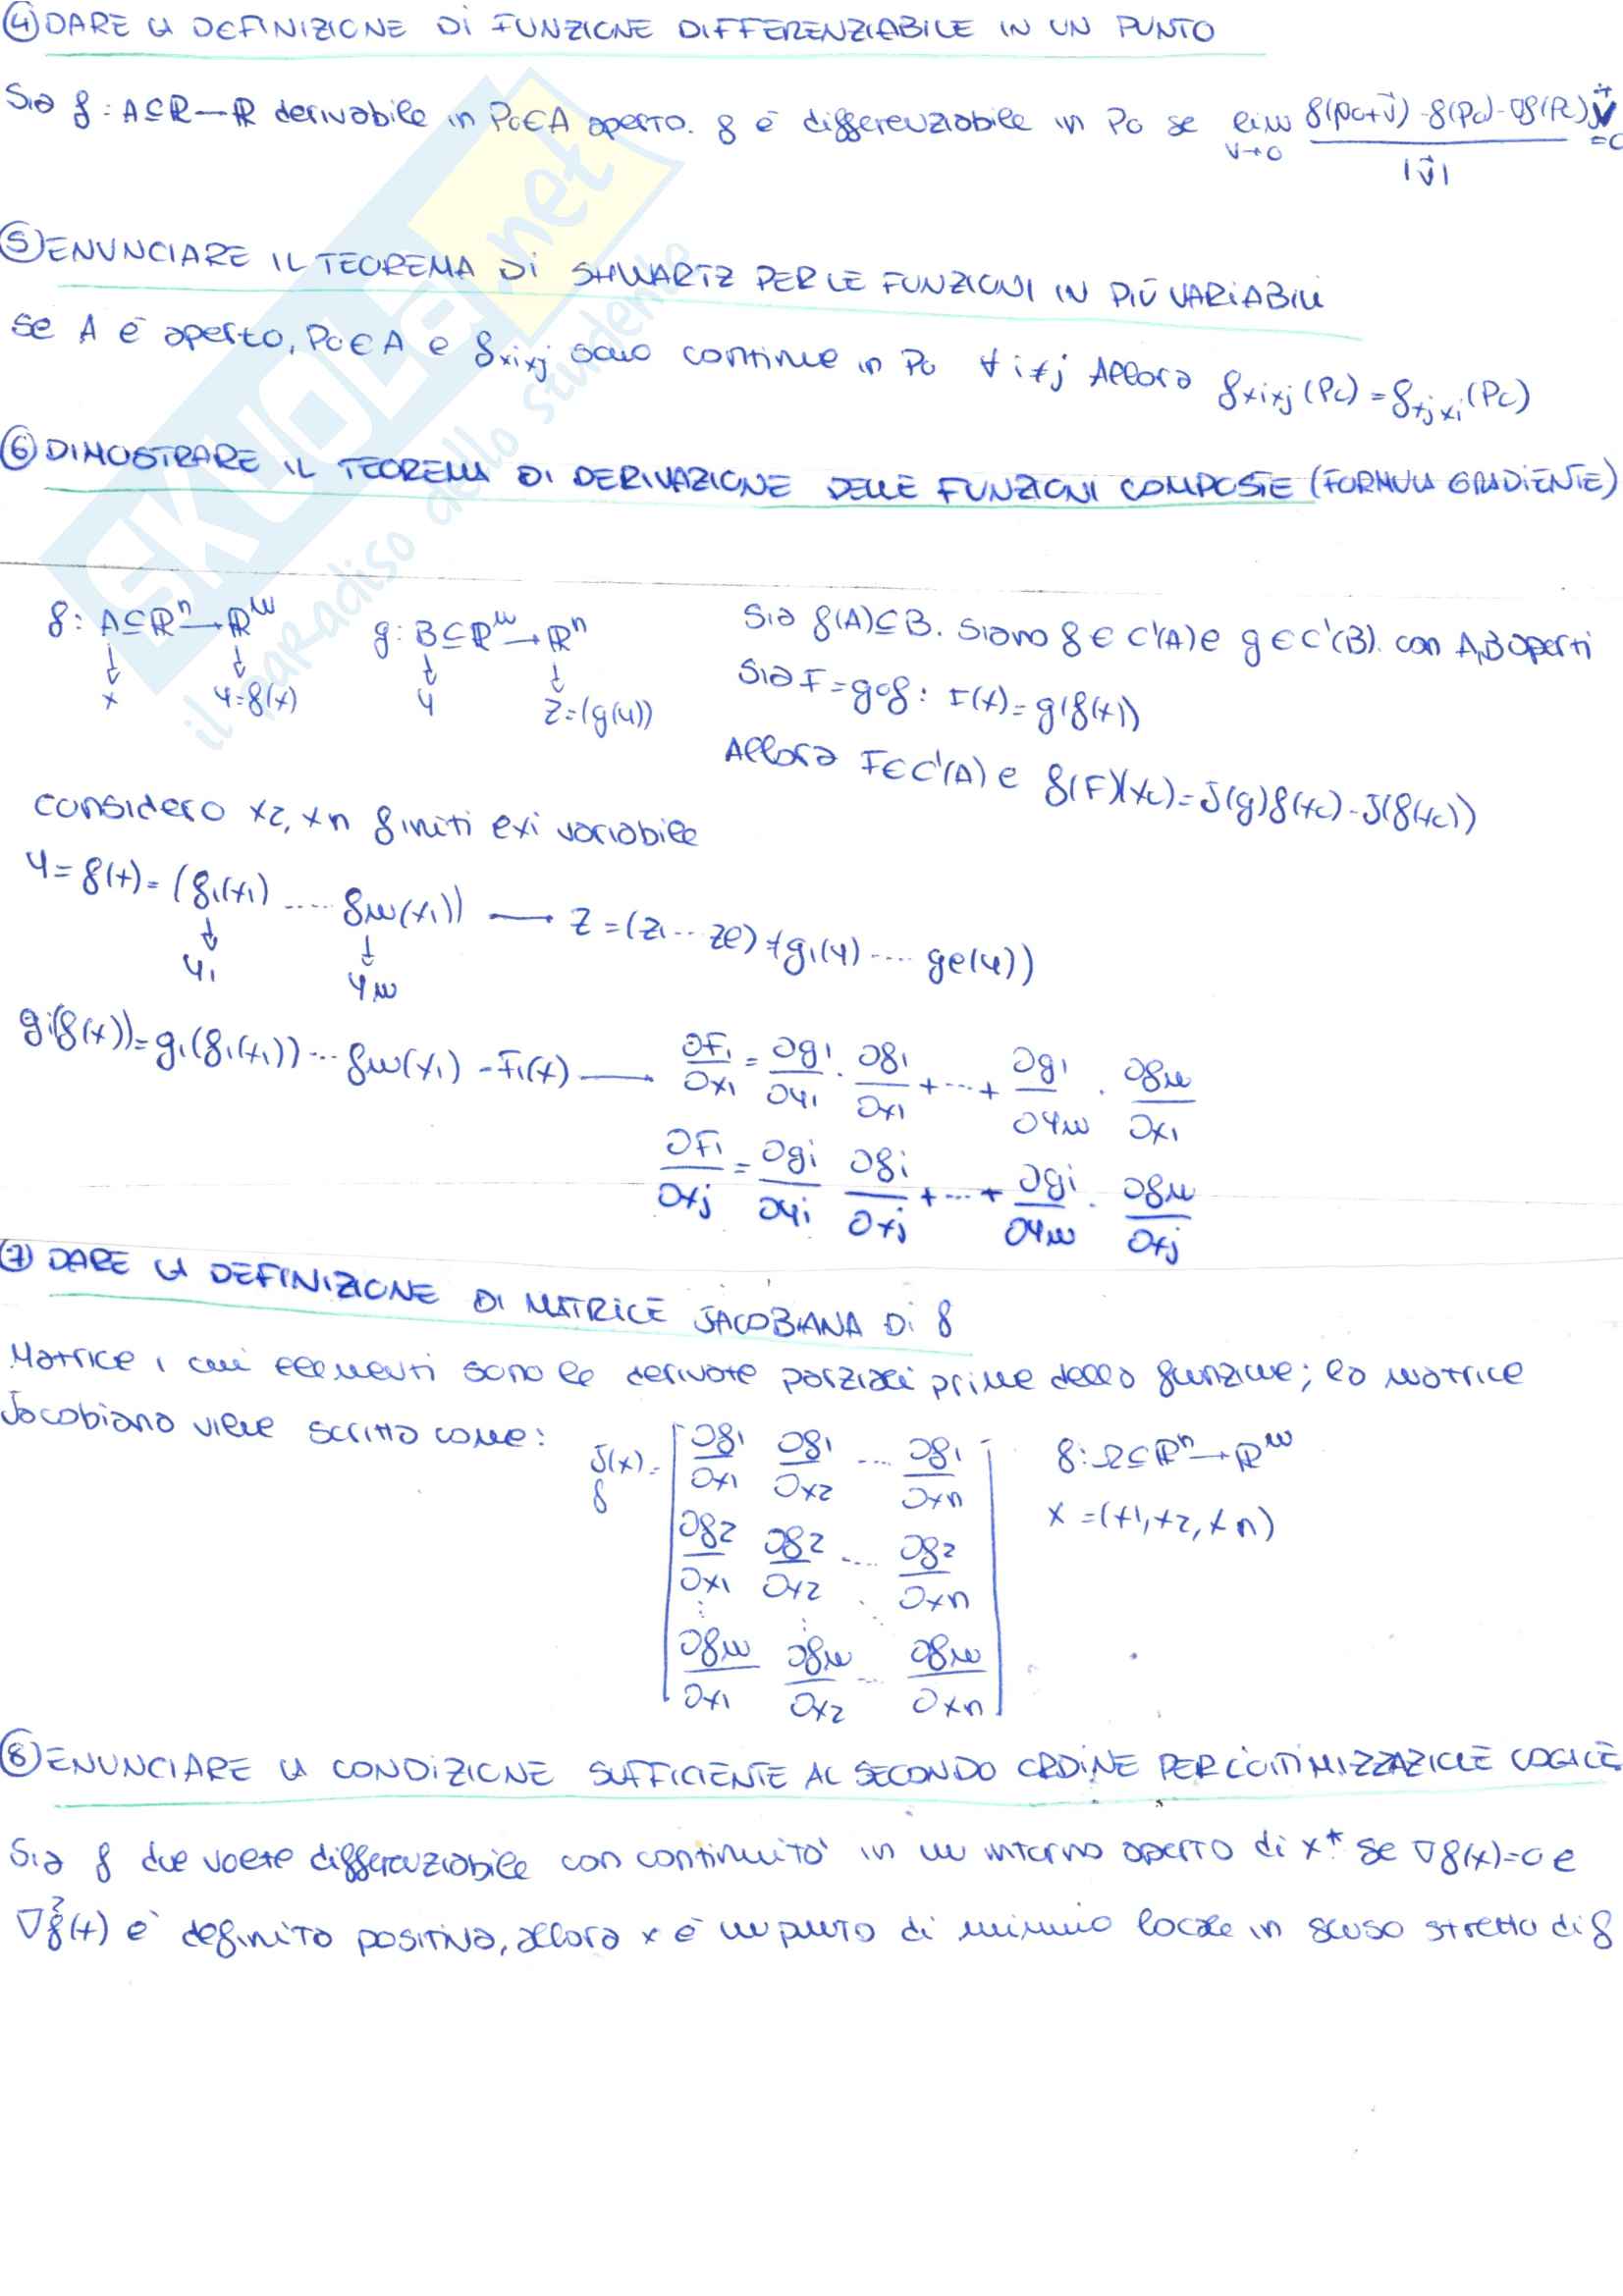 ④ DARE LA DEFINIZIONE DI FUNZIONE DIFFERENZIABILE IN UN PUNTO
Sia f: A⊆R→R derivabile in P₀∈A aperto. f è differenziabile in P₀ se lim v→0 f(p₀+v⃗)-f(p₀)-∇f(P₀)v⃗ / |v⃗| =0
⑤ ENUNCIARE IL TEOREMA DI SHWARTZ PER LE FUNZIONI IN PIÙ VARIABILI
se A è aperto, P₀∈A e fxixj sono continue in P₀ ∀i≠j Allora fxixj(P₀)=fxjxi(P₀)
⑥ DIMOSTRARE IL TEOREMA DI DERIVAZIONE DELLE FUNZIONI COMPOSTE (FORMULA GRADIENTE)
f: A⊆Rⁿ→Rᵐ g: B⊆Rᵐ→Rⁿ Sia f(A)⊆B. Siano f∈C¹(A) e g∈C¹(B). con A,B aperti
↓ x ↓ y=f(x) ↓ y ↓ z=(g(y)) Sia F=g∘f: F(x)=g(f(x))
Allora F∈C¹(A) e f(F)(x₀)=J(g)f(x₀)-J(f(x₀))
considero x₂, xn finiti e x₁ variabile
y=f(x)=(f₁(x₁) .... fm(x₁)) → z=(z₁...ze)=(g₁(y)....ge(y))
↓ y₁ ↓ ym
gi(f(x))=g₁(f₁(x₁))...fm(x₁)=F₁(x) → ∂F₁/∂x₁ = ∂g₁/∂y₁ · ∂f₁/∂x₁ +...+ ∂g₁/∂ym · ∂fm/∂x₁
∂Fi/∂xj = ∂gi/∂yi ∂fi/∂xj +...+ ∂gi/∂ym · ∂fm/∂xj
⑦ DARE LA DEFINIZIONE DI MATRICE JACOBIANA DI f
Matrice i cui elementi sono le derivate parziali prime della funzione; la matrice
Jacobiana viene scritta come:
J(x)= f [ ∂f₁/∂x₁ ∂f₁/∂x₂ .... ∂f₁/∂xn f: Ω⊆Rⁿ→Rᵐ
∂f₂/∂x₁ ∂f₂/∂x₂ .... ∂f₂/∂xn x=(x₁,x₂,xn)
∂fm/∂x₁ ∂fm/∂x₂ ... ∂fm/∂xn ]
⑧ ENUNCIARE LA CONDIZIONE SUFFICIENTE AL SECONDO ORDINE PER L'OTTIMIZZAZIONE LOCALE
Sia f due volte differenziabile con continuità in un intorno aperto di x*. Se ∇f(x)=0 e
∇²f(x) è definita positiva, allora x è un punto di minimo locale in senso stretto di f
SKUOLA.net
il paradiso dello studente